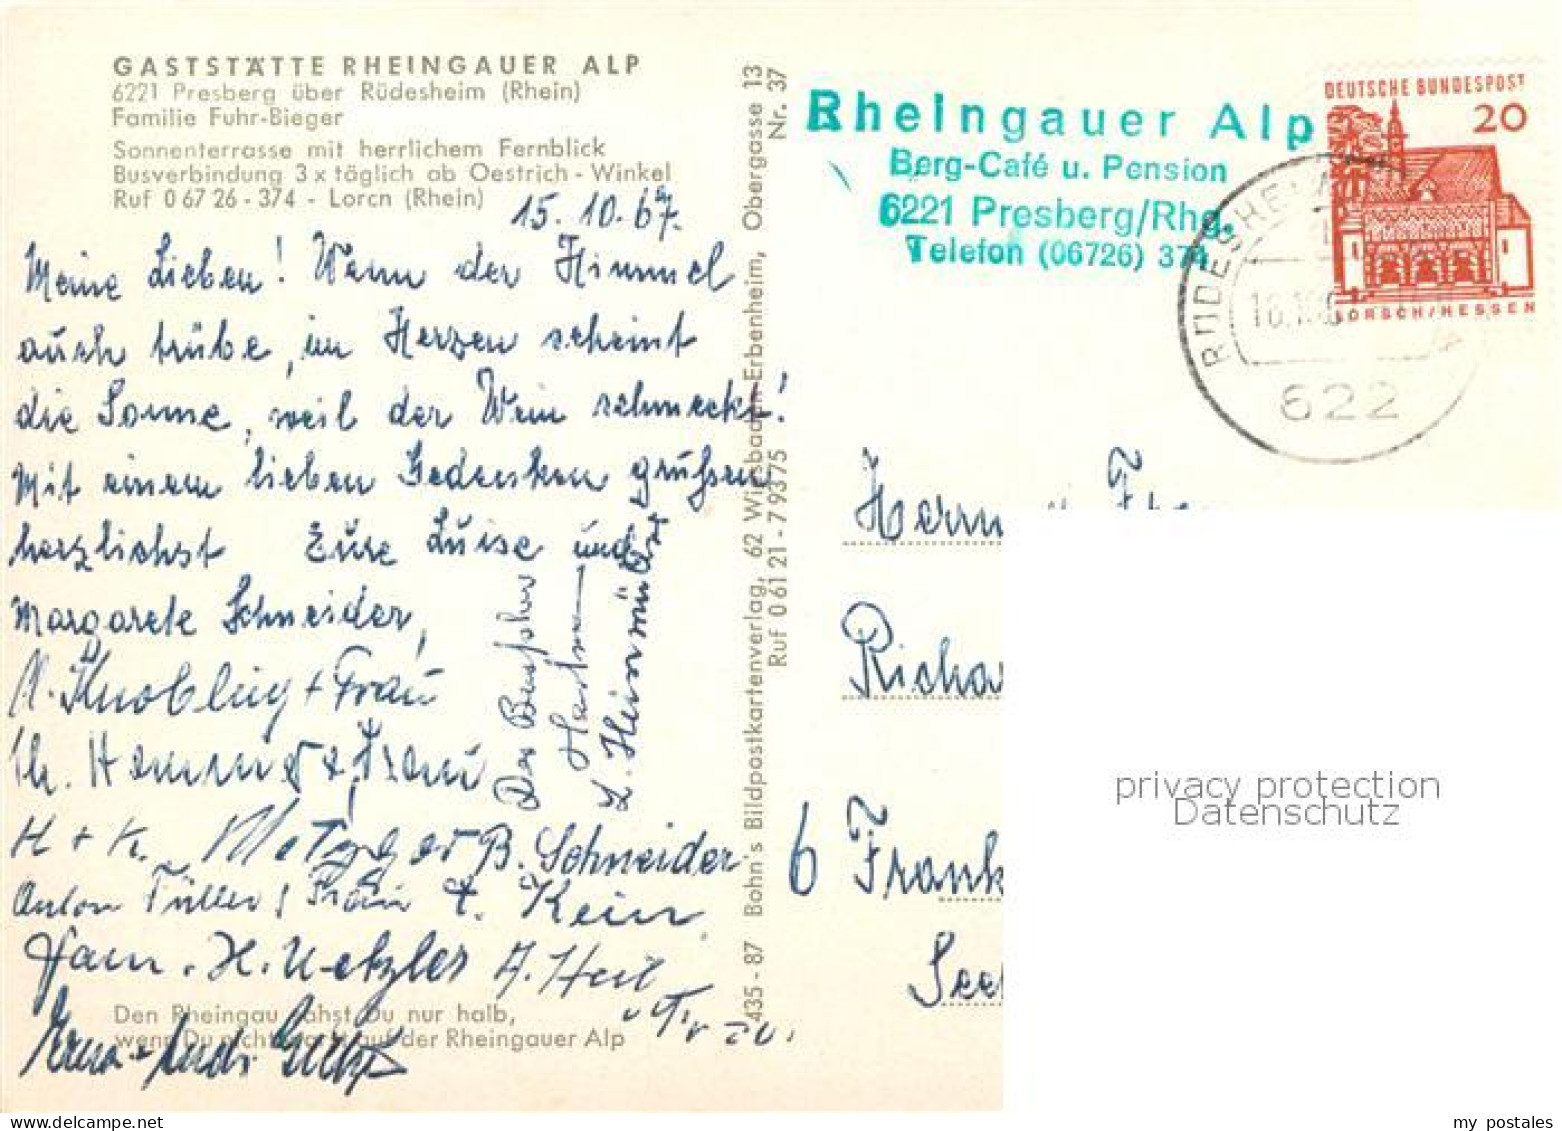 GASTSTÄTTE RHEINGAUER ALP
6221 Presberg über Rüdesheim (Rhein)
Familie Fuhr-Bieger
Sonnenterrasse mit herrlichem Fernblick
Busverbindung 3 x täglich ab Oestrich - Winkel
Ruf 0 67 26 - 374 - Lorch (Rhein)
15. 10. 67.
Meine Lieben! Wenn der Himmel
auch trübe, im Herzen scheint
die Sonne, weil der Wein schmeckt!
Mit einem lieben Gedenken grüßen
herzlichst Eure Luise und
Margarete Schneider,
Knobling + Frau
H + K. Metzger B. Schneider
Anton Füller, Frau Kein
Fam. H. Metzler
Hartmann
Den Rheingau sahst Du nur halb,
wenn Du nicht warst auf der Rheingauer Alp
435 - 87 Bohn's Bildpostkartenverlag, 62 Wiesbaden-Erbenheim, Obergasse 13
Ruf 0 61 21 - 7 93 75 Nr. 37
Rheingauer Alp
Berg-Café u. Pension
6221 Presberg/Rhg.
Telefon (06726) 374
DEUTSCHE BUNDESPOST
20
LORSCH/HESSEN
RÜDESHEIM
622
Herrn u.
Richa
6 Frank
See
privacy protection
Datenschutz
my postales